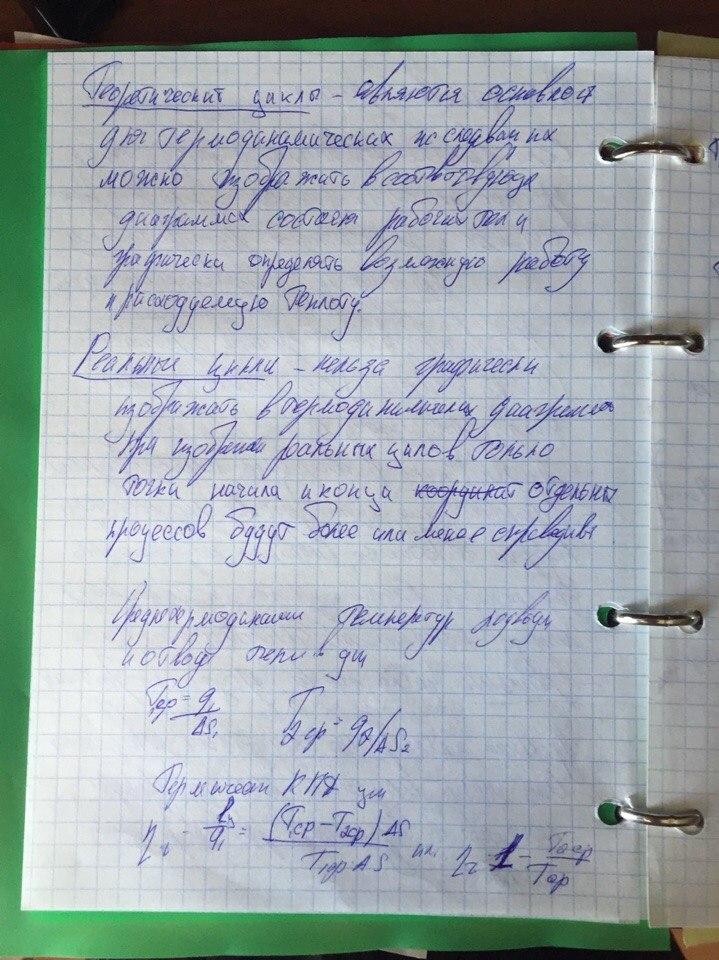 Теоретический циклы – являются основной
для термодинамических исследван их
можно изображать в соответвующе
диаграммах состоян рабочих тел и
графически определять возможную работу
и расходуемую теплоту.
Реальные циклы – нельзя графически
изображать в термодинамических диаграммах
при изображен реальных цилов только
точки начала и конца координат отдельны
процессов будут более или менее справедливы
Среднетермодинамич температур подвода
и отвода тепл в дщ
T₁ср = q₁/ΔS₁ T₂ср = q₂/ΔS₂
Термически КПД
η = = (T₁ср – T₂ср) ΔS / T₁ср ΔS или η 1 – T₂ср/T₁ср